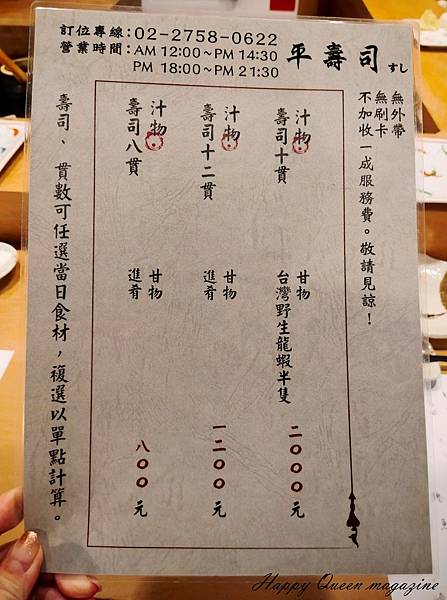 訂位專線:02-2758-0622
營業時間:AM 12:00~PM 14:30
PM 18:00~PM 21:30
平壽司 すし
無外帶
無刷卡
不加收一成服務費。敬請見諒！
汁物 甘物
壽司十貫 台灣野生龍蝦半隻 二〇〇〇元
汁物 甘物
壽司十二貫 進肴 一二〇〇元
汁物 甘物
壽司八貫 進肴 八〇〇元
壽司、貫數可任選當日食材，複選以單點計算。
Happy Queen magazine